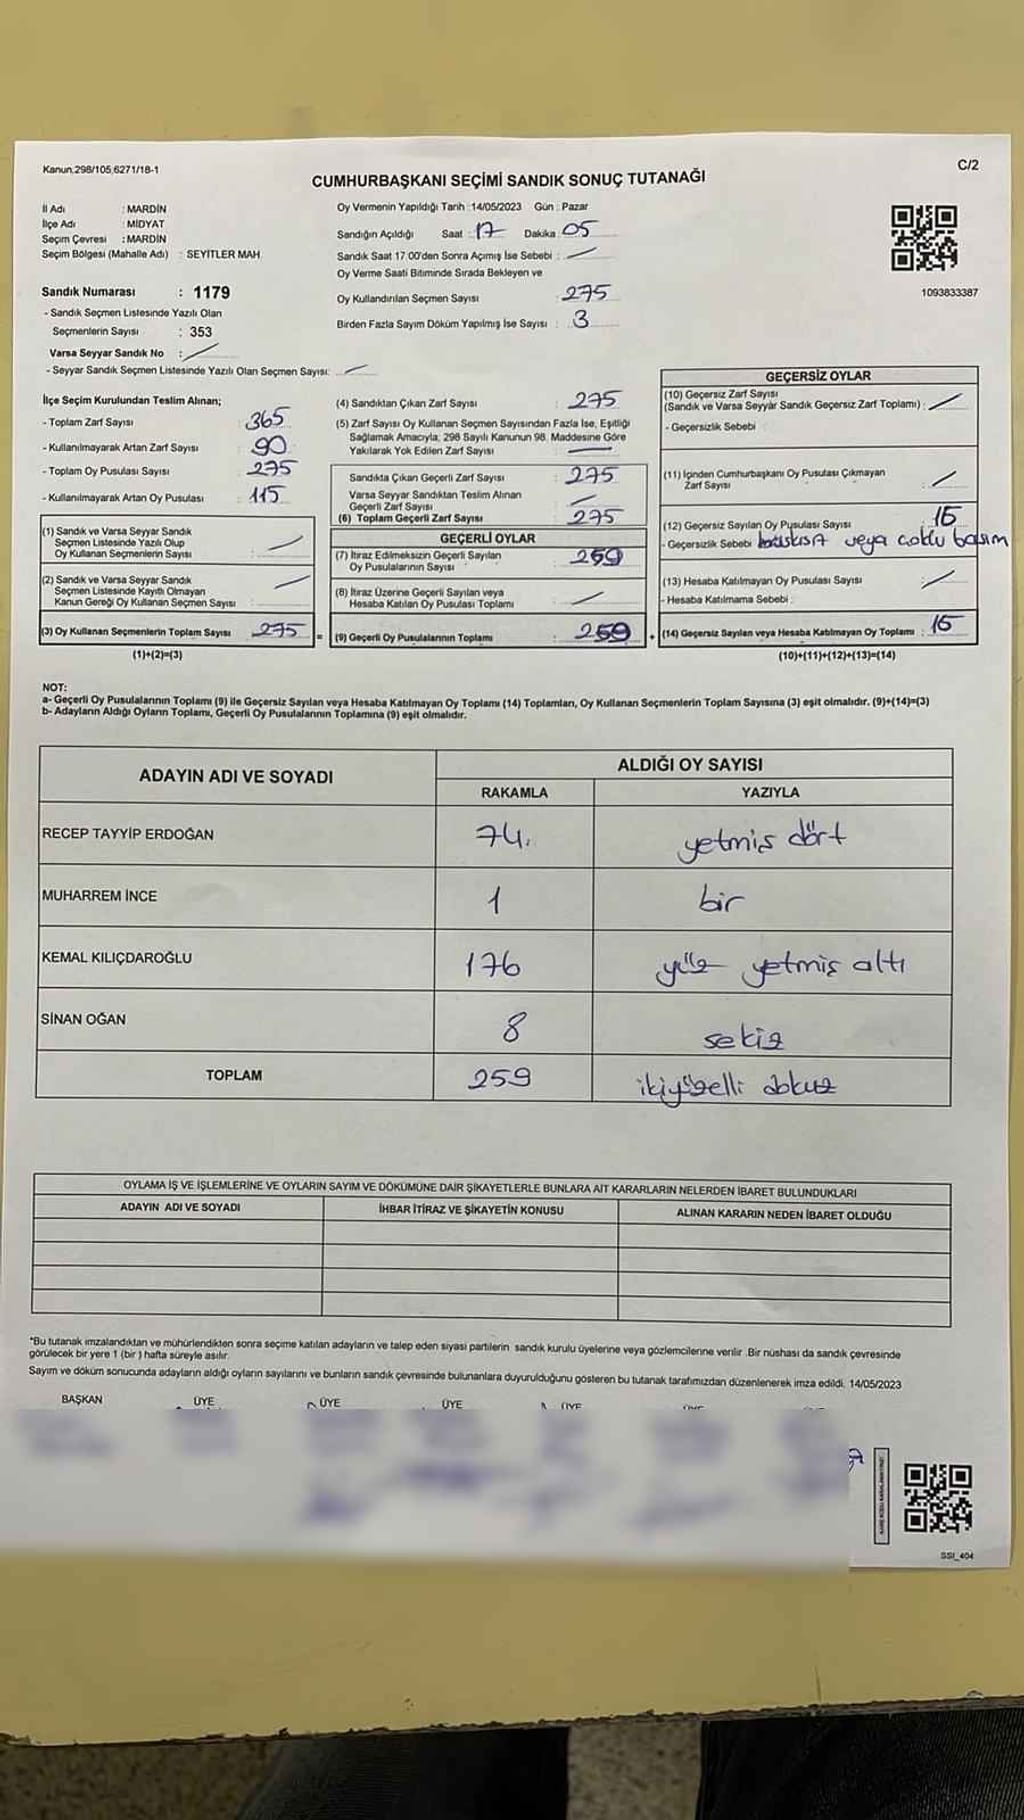 Kanun,298/105,6271/18-1
C/2
CUMHURBAŞKANI SEÇİMİ SANDIK SONUÇ TUTANAĞI
İl Adı : MARDİN
İlçe Adı : MİDYAT
Seçim Çevresi : MARDİN
Seçim Bölgesi (Mahalle Adı) : SEYİTLER MAH.
Sandık Numarası : 1179
- Sandık Seçmen Listesinde Yazılı Olan
Seçmenlerin Sayısı : 353
Varsa Seyyar Sandık No :
- Seyyar Sandık Seçmen Listesinde Yazılı Olan Seçmen Sayısı:
Oy Vermenin Yapıldığı Tarih :14/05/2023 Gün : Pazar
Sandığın Açıldığı Saat : 17 Dakika : 05
Sandık Saat 17:00'den Sonra Açımış İse Sebebi :
Oy Verme Saati Bitiminde Sırada Bekleyen ve
Oy Kullandırılan Seçmen Sayısı : 275
Birden Fazla Sayım Döküm Yapılmış İse Sayısı : 3
1093833387
İlçe Seçim Kurulundan Teslim Alınan;
- Toplam Zarf Sayısı : 365
- Kullanılmayarak Artan Zarf Sayısı : 90
- Toplam Oy Pusulası Sayısı : 275
- Kullanılmayarak Artan Oy Pusulası : 115
(1) Sandık ve Varsa Seyyar Sandık
Seçmen Listesinde Yazılı Olup
Oy Kullanan Seçmenlerin Sayısı
(2) Sandık ve Varsa Seyyar Sandık
Seçmen Listesinde Kayıtlı Olmayan
Kanun Gereği Oy Kullanan Seçmen Sayısı
(3) Oy Kullanan Seçmenlerin Toplam Sayısı : 275
(1)+(2)=(3)
(4) Sandıktan Çıkan Zarf Sayısı : 275
(5) Zarf Sayısı Oy Kullanan Seçmen Sayısından Fazla İse, Eşitliği
Sağlamak Amacıyla, 298 Sayılı Kanunun 98. Maddesine Göre
Yakılarak Yok Edilen Zarf Sayısı
Sandıkta Çıkan Geçerli Zarf Sayısı : 275
Varsa Seyyar Sandıktan Teslim Alınan
Geçerli Zarf Sayısı
(6) Toplam Geçerli Zarf Sayısı 275
GEÇERLİ OYLAR
(7) İtiraz Edilmeksizin Geçerli Sayılan
Oy Pusulalarının Sayısı : 259
(8) İtiraz Üzerine Geçerli Sayılan veya
Hesaba Katılan Oy Pusulası Toplamı
= (9) Geçerli Oy Pusulalarının Toplamı : 259
GEÇERSİZ OYLAR
(10) Geçersiz Zarf Sayısı
(Sandık ve Varsa Seyyar Sandık Geçersiz Zarf Toplamı) :
- Geçersizlik Sebebi :
(11) İçinden Cumhurbaşkanı Oy Pusulası Çıkmayan
Zarf Sayısı
(12) Geçersiz Sayılan Oy Pusulası Sayısı : 16
- Geçersizlik Sebebi veya basım
(13) Hesaba Katılmayan Oy Pusulası Sayısı :
- Hesaba Katılmama Sebebi :
+ (14) Geçersiz Sayılan veya Hesaba Katılmayan Oy Toplamı : 16
(10)+(11)+(12)+(13)=(14)
NOT:
a- Geçerli Oy Pusulalarının Toplamı (9) ile Geçersiz Sayılan veya Hesaba Katılmayan Oy Toplamı (14) Toplamları, Oy Kullanan Seçmenlerin Toplam Sayısına (3) eşit olmalıdır. (9)+(14)=(3)
b- Adayların Aldığı Oyların Toplamı, Geçerli Oy Pusulalarının Toplamına (9) eşit olmalıdır.
ADAYIN ADI VE SOYADI
ALDIĞI OY SAYISI
RAKAMLA YAZIYLA
RECEP TAYYİP ERDOĞAN 74. yetmiş dört
MUHARREM İNCE 1 bir
KEMAL KILIÇDAROĞLU 176 yüz yetmiş altı
SİNAN OĞAN 8 sekiz
TOPLAM 259 ikiyüzelli dokuz
OYLAMA İŞ VE İŞLEMLERİNE VE OYLARIN SAYIM VE DÖKÜMÜNE DAİR ŞİKAYETLERLE BUNLARA AİT KARARLARIN NELERDEN İBARET BULUNDUKLARI
ADAYIN ADI VE SOYADI İHBAR İTİRAZ VE ŞİKAYETİN KONUSU ALINAN KARARIN NEDEN İBARET OLDUĞU
*Bu tutanak imzalandıktan ve mühürlendikten sonra seçime katılan adayların ve talep eden siyasi partilerin sandık kurulu üyelerine veya gözlemcilerine verilir .Bir nüshası da sandık çevresinde
görülecek bir yere 1 (bir ) hafta süreyle asılır.
Sayım ve döküm sonucunda adayların aldığı oyların sayılarını ve bunların sandık çevresinde bulunanlara duyurulduğunu gösteren bu tutanak tarafımızdan düzenlenerek imza edildi. 14/05/2023
BAŞKAN ÜYE ÜYE ÜYE ÜYE
SSI_404